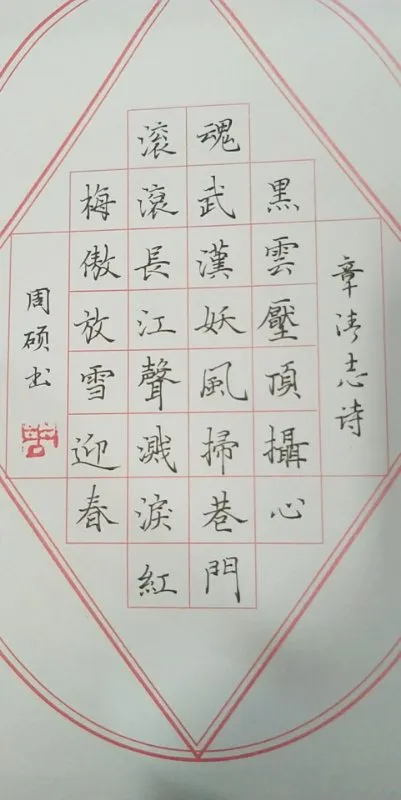 章清志诗
黑雲壓頂攝心
魂武漢妖風掃巷門
滚滾長江聲濺淚紅
梅傲放雪迎春
周硕书